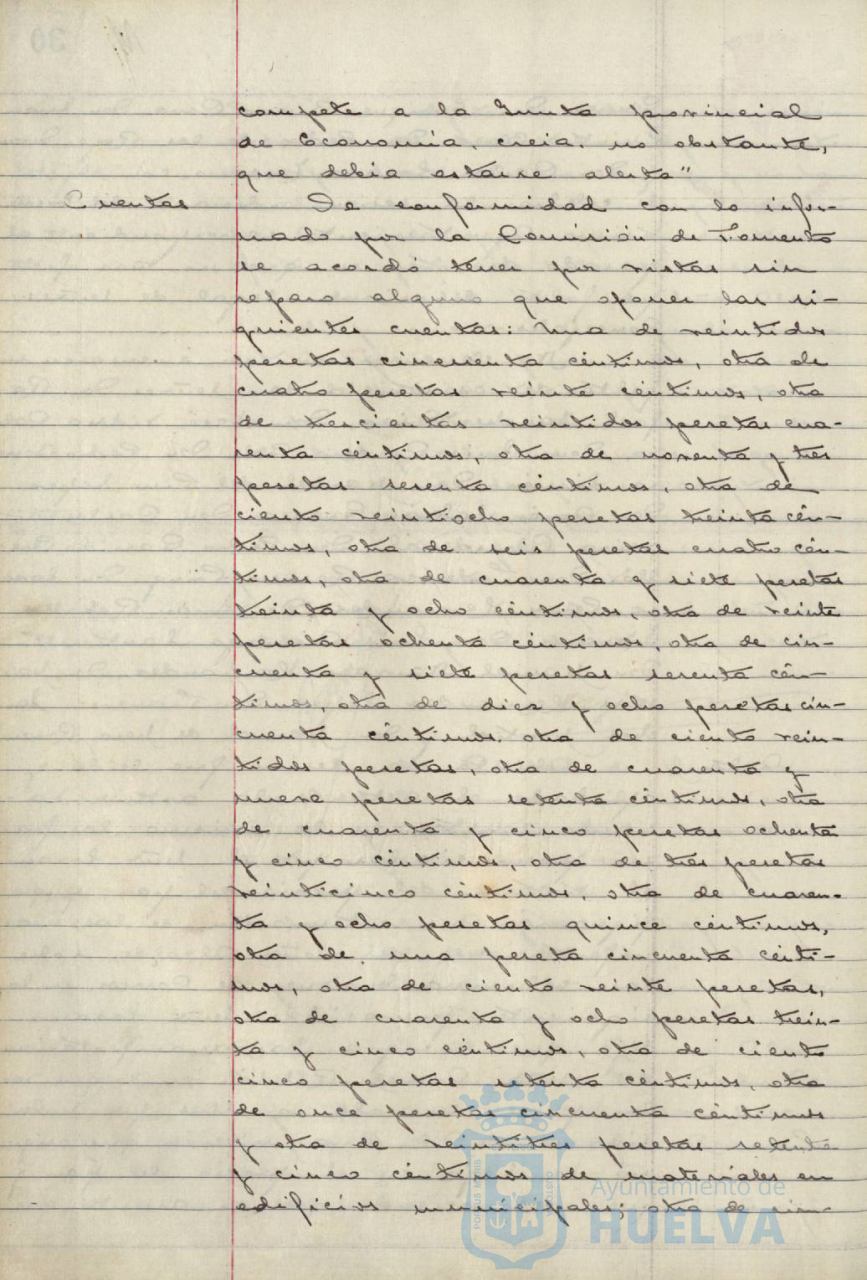 compete a la Junta provincial
de Economía, creia, no obstante,
que debia estarse alerta"
Cuentas
De conformidad con lo infor-
mado por la Comisión de Fomento
se acordó tener por vistas sin
reparo alguno que oponer las si-
guientes cuentas: Una de veintidos
pesetas cincuenta céntimos, otra de
cuatro pesetas veinte céntimos, otra
de trescientas veintidos pesetas cua-
renta céntimos, otra de noventa y tres
pesetas sesenta céntimos, otra de
ciento veintiocho pesetas treinta cén-
timos, otra de seis pesetas cuatro cén-
timos, otra de cuarenta y siete pesetas
treinta y ocho céntimos, otra de veinte
pesetas ochenta céntimos, otra de cin-
cuenta y siete pesetas sesenta cén-
timos, otra de diez y ocho pesetas cin-
cuenta céntimos, otra de ciento vein-
tidos pesetas, otra de cuarenta y
nueve pesetas setenta céntimos, otra
de cuarenta y cinco pesetas ochenta
y cinco céntimos, otra de tres pesetas
veinticinco céntimos, otra de cuaren-
ta y ocho pesetas quince céntimos,
otra de una peseta cincuenta cénti-
mos, otra de ciento veinte pesetas,
otra de cuarenta y ocho pesetas trein-
ta y cinco céntimos, otra de ciento
cinco pesetas setenta céntimos, otra
de once pesetas cincuenta céntimos
y otra de veintitres pesetas setenta
y cinco céntimos de materiales en
edificios municipales; otra de cin-
Ayuntamiento de
HUELVA